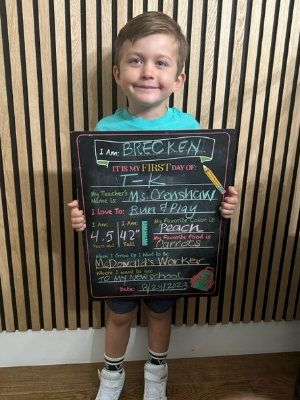 I Am: BRECKEN
IT IS MY FIRST DAY OF:
T-K
My Teacher's Name is: Ms. Cronshaw
I Love To: Run & Play
I Am: 4.5 Years Old
I Am: 42" Tall
My Favorite Color is: Peach
My Favorite Food is: Carrots
When I Grow Up I Want to Be:
McDonald's Worker
Where I want to go:
To My New school
Date: 8/24/2023